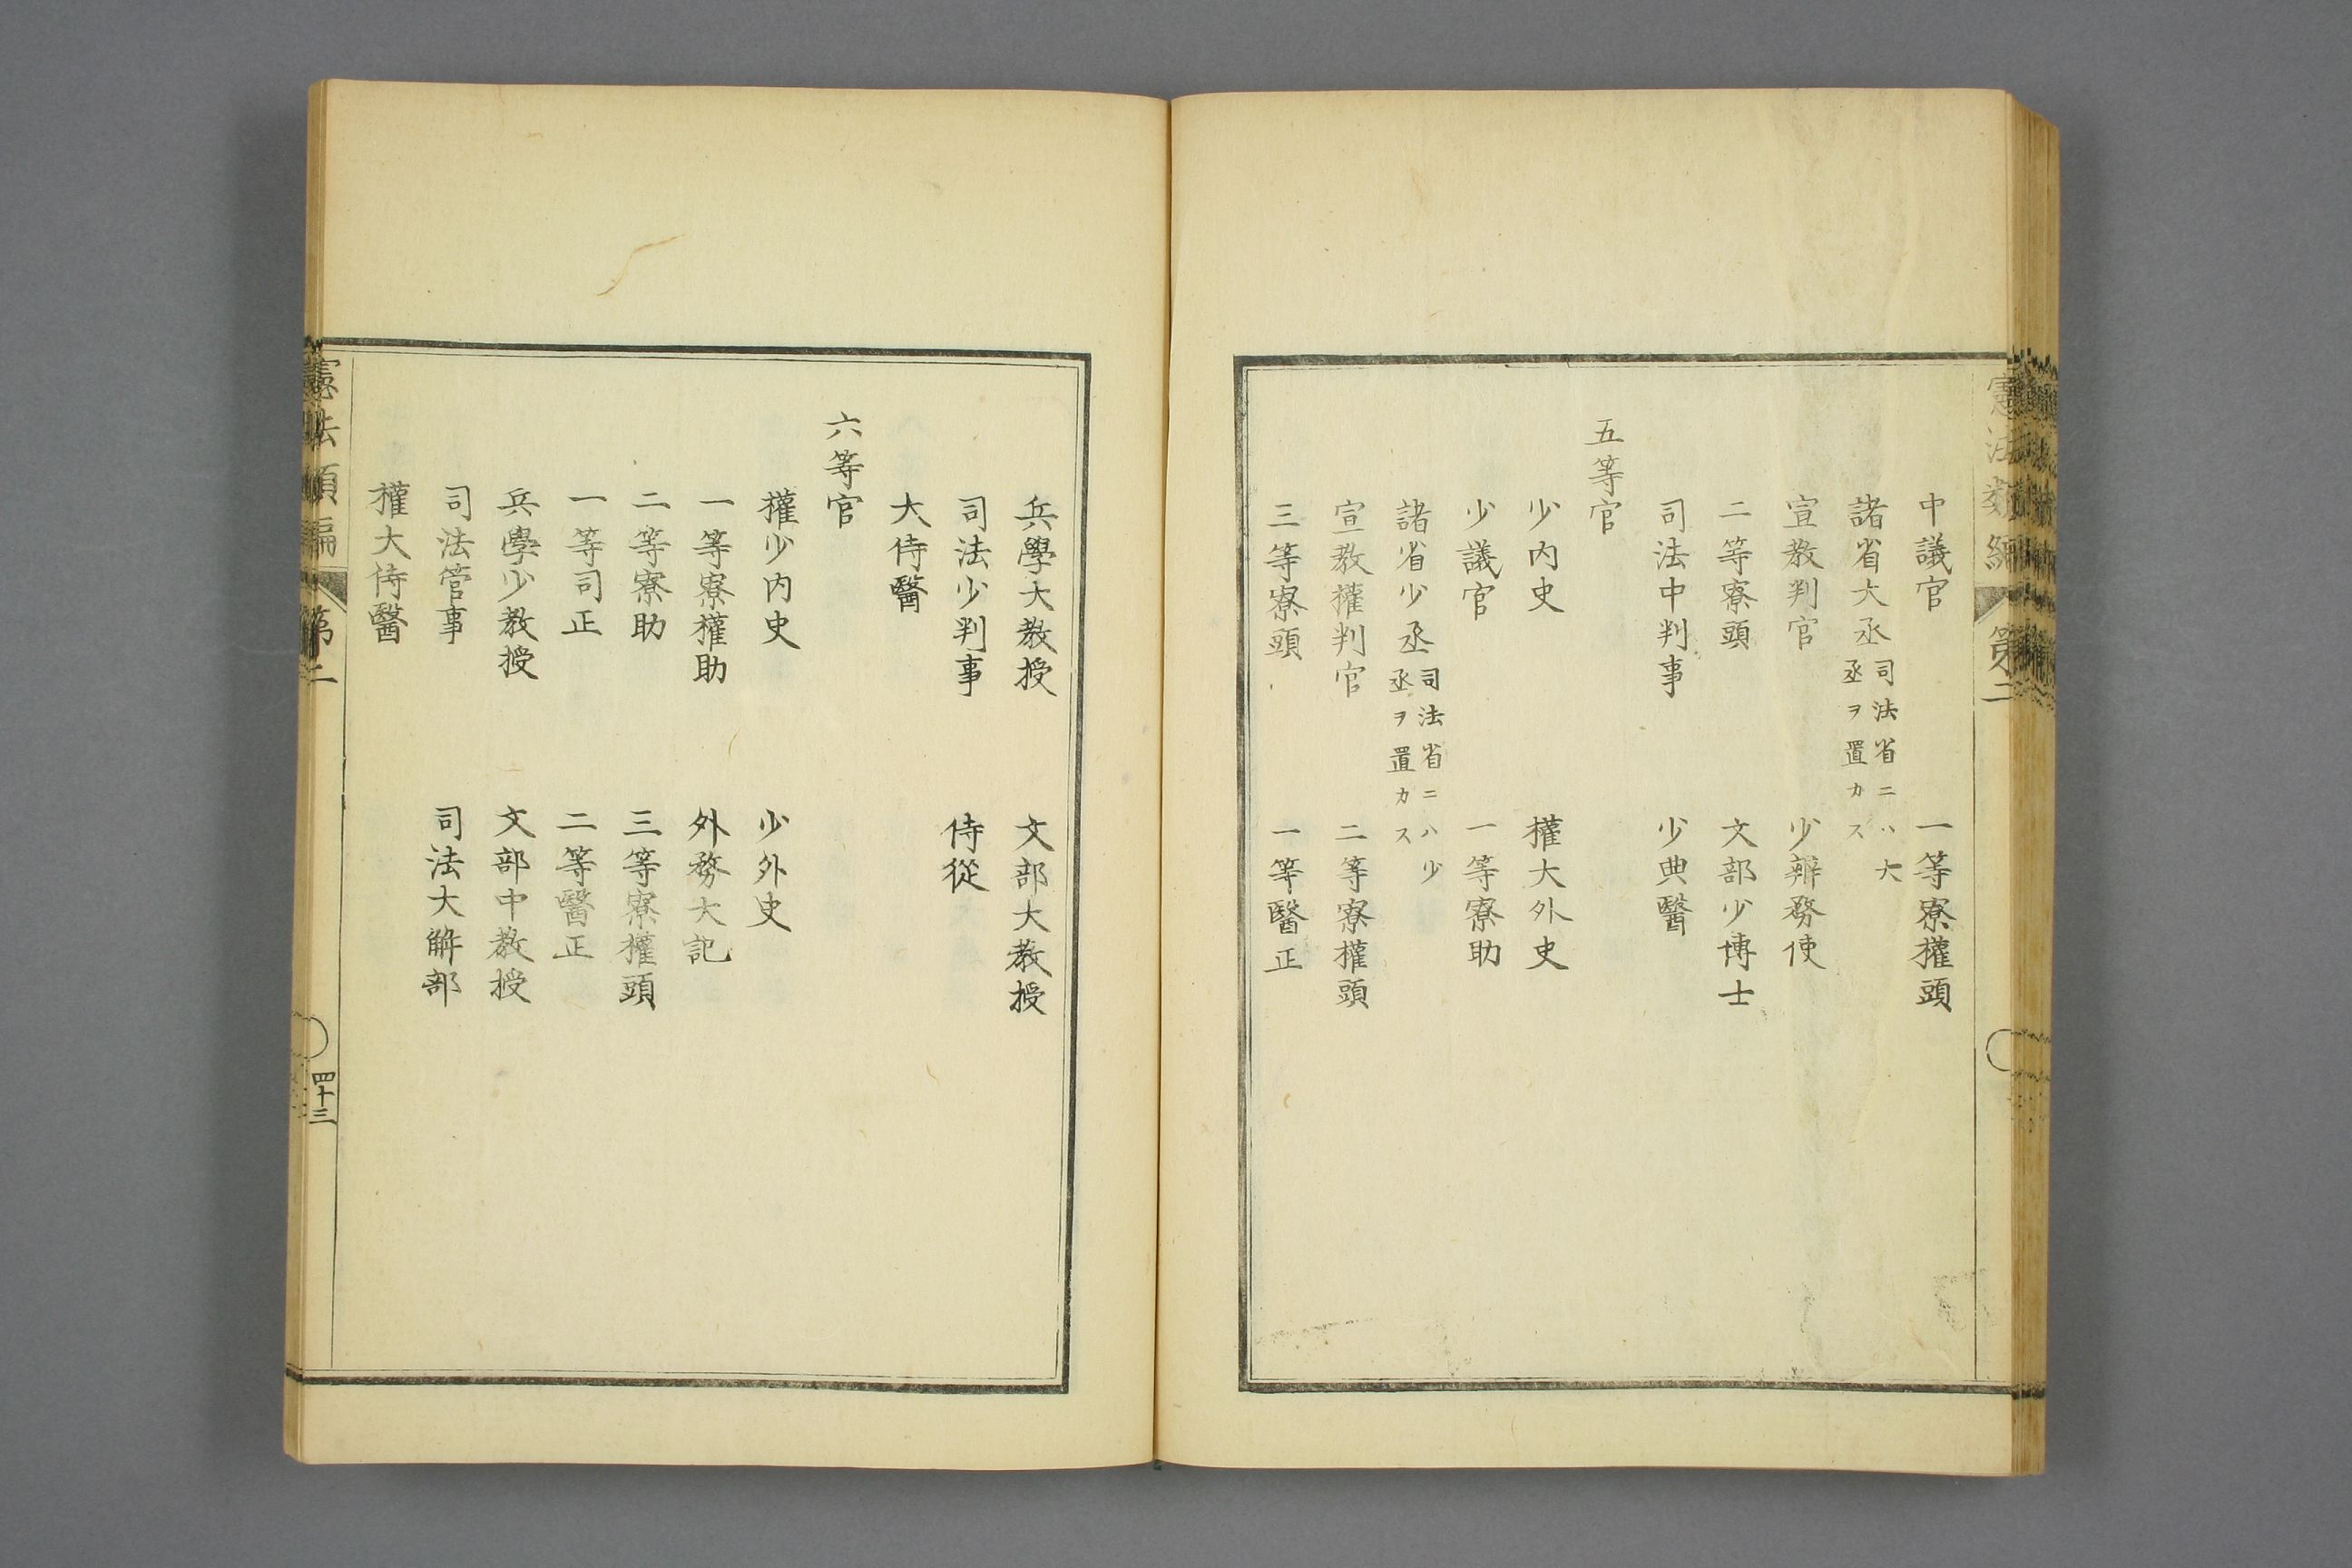 憲法類編 第二
中議官 一等寮權頭
諸省大丞 司法省ニハ大
丞ヲ置カス
宣教判官 少辨務使
二等寮頭 文部少博士
司法中判事 少典醫
五等官
少内史 權大外史
少議官 一等寮助
諸省少丞 司法省ニハ少
丞ヲ置カス
宣教權判官 二等寮權頭
三等寮頭 一等醫正
兵學大教授 文部大教授
司法少判事 侍從
大侍醫
六等官
權少内史 少外史
一等寮權助 外務大記
二等寮助 三等寮權頭
一等司正 二等醫正
兵學少教授 文部中教授
司法管事 司法大解部
權大侍醫
憲法類編 第二 四十三